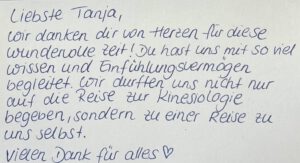 Liebste Tanja,
wir danken dir von Herzen für diese
wundervolle Zeit! Du hast uns mit so viel
wissen und Einfühlungsvermögen
begleitet. Wir durften uns nicht nur
auf die Reise zur Kinesiologie
begeben, sondern zu einer Reise zu
uns selbst.
Vielen Dank für alles ♡